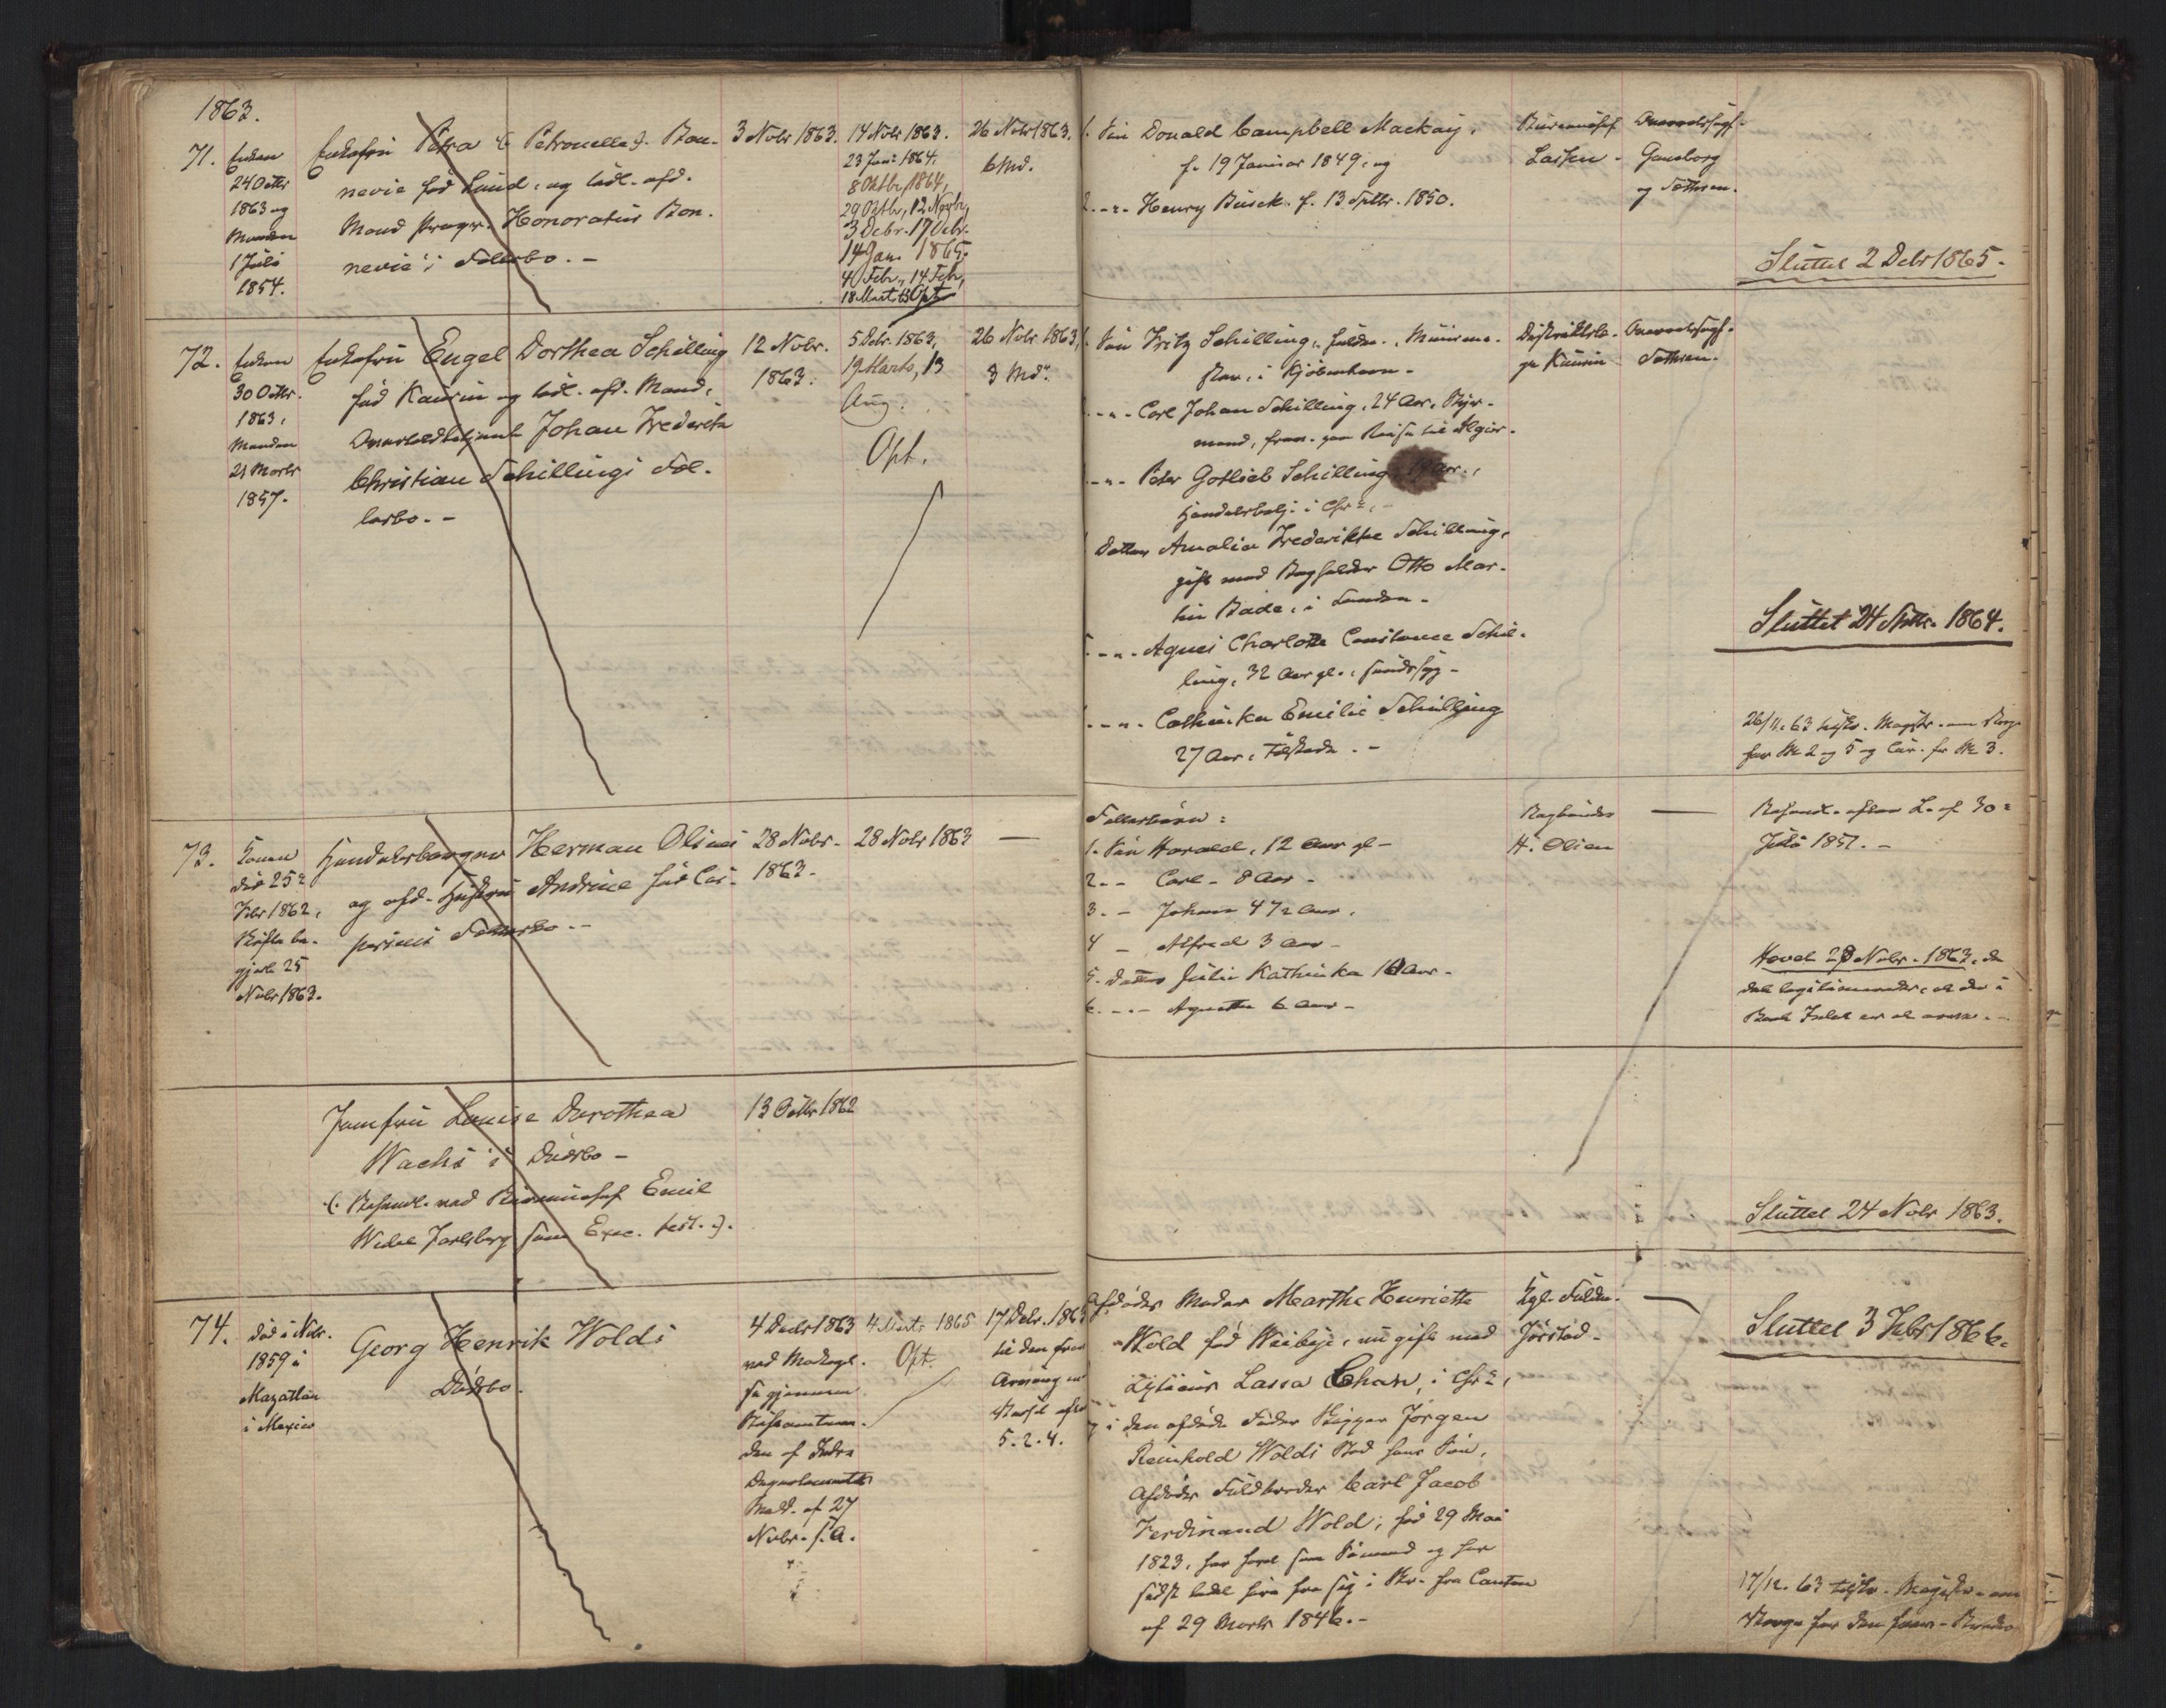 1863.
71. Enken
24 Octbr
1863 og
Manden
1 Juli
1854.
Enkefru Petra (: Petronelle :) Bon-
nevie fød Lund, og tidl. afd.
Mand Honoratus Bon-
nevie's Fællesbo. -
3 Novbr 1863.
14 Novbr 1863.
23 Juni 1864.
8 Oktbr, 1864,
29 Oktbr, 12 Novbr,
3 Decbr. 17 Decbr.
14 Jan. 1865.
4 Febr., 14 Febr,
18 Marts Opt
26 Novbr 1863.
6 Md.
1. Søn Donald Campbell Mackay,
f. 19 Januar 1849, og
2. - - Henry Buick f. 13 Septbr. 1850.
Bureauchef
Lasson -
Overretssagf.
Gamborg
og Sothsen.
Sluttet 2 Decbr 1865.
72. Enken
30 Octbr.
1863,
Manden
21 Marts
1857.
Enkefru Engel Dorthea Schilling
fød Kaurin og tidl. afd. Mand,
Johan Frederik
Christian Schillings Fæl-
lesbo. -
12 Novbr.
1863.
5 Decbr. 1863,
19 Marts, 13
Aug.
Opt.
26 Novbr 1863,
3 Md.
Søn Fritz Schilling, Muurme-
ster, i Kjøbenhavn -
- - Carl Johan Schilling, 24 Aar, Styr-
mand, frav. paa Reise til Algier.
- - Peter Gotlieb Schilling Aar,
Handelsbetj. i Chra, -
Datter Amalia Frederikke Schilling,
gift med Bogholder Otto Mar-
tin Bade, i London -
- - Agnes Charlotte Constance Schil-
ling, 32 Aar gl., sindssyg -
- - Cathinka Emilie Schilling
27 Aar, tilstede. -
Distriktslæ-
ge Kaurin
Overretssagf.
Sothsen.
Sluttet 24 Septbr. 1864.
26/11. 63 tilskr. Magistr. om Værge
for No 2 og 5 og Cur. for No 3.
73. Konen
død 25
Febr 1862,
Skifte be-
gjært 25
Novbr 1863.
Handelsborger Herman Olsens
og afd. Hustru Andrine fød Cas-
persens Fællesbo. -
28 Novbr.
1863.
28 Novbr 1863
—
Fællesbørn:
1. Søn Harald, 12 Aar gl -
2. - Carl - 8 Aar -
3. - Johan 4 1/2 Aar.
4 - Alfred 3 Aar -
5. Datter Julie Kathinka 10 Aar -
6. - - Agnethe 6 Aar -
H. Olsen
—
Behandl. efter L. af 30
Juli 1851. -
Hævet 28 Novbr. 1863, da
det legitimeredes, at der i
Boet Intet er at arve. -
Jomfru Louise Dorothea
Wachs's Dødsbo -
(: Behandl. ved Bureauchef Emil
Wedel Jarlsberg som Exec. test. :).
13 Octbr 1862
Sluttet 24 Novbr 1863.
74. Død i Novbr.
1859 i
Mazatlan
i Mexico
Georg Henrik Wolds
Dødsbo.
4 Decbr 1863
ved Modtagl.
gjennem
den af Indre
Departementets
Medd. af 27
Novbr. s. A.
4 Marts 1865
Opt.
17 Decbr. 1863
til den frav.
Arving m
Varsel efter
5. 2. 4.
Afdødes Moder Marthe Henriette
Wold fød Weibye, nu gift med
Lars Chan, i Chra,
og i den afdøde Fader Skipper Jørgen
Reinhold Wolds Sted hans Søn,
Afdødes Fuldbroder Carl Jacob
Ferdinand Wold, fød 29 Mai
1823, har faret som Sømand og har
sidst ladet høre fra sig i Br. fra Canton
af 29 Marts 1846. -
Kgl. Fuldm.
Jørstad -
—
Sluttet 3 Febr 1866.
17/12. 63 tilskr. Magistr. om
Værge for den frav. Broder